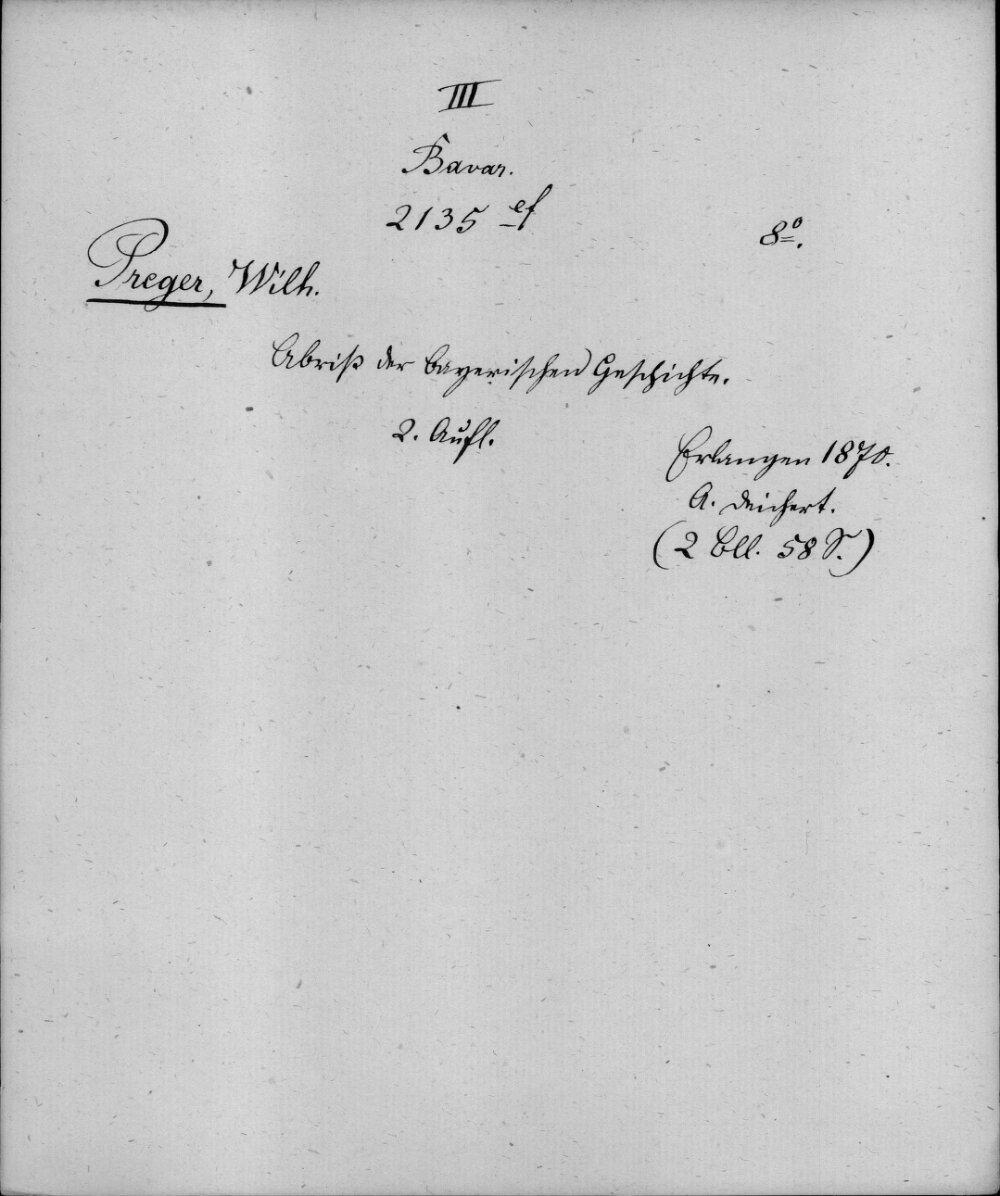 III
Bavar.
2135 ef
8°.
Preger, Wilh.
Abriß der bayerischen Geschichte.
2. Aufl.
Erlangen 1870.
A. Deichert.
(2 Bll. 58 S.)